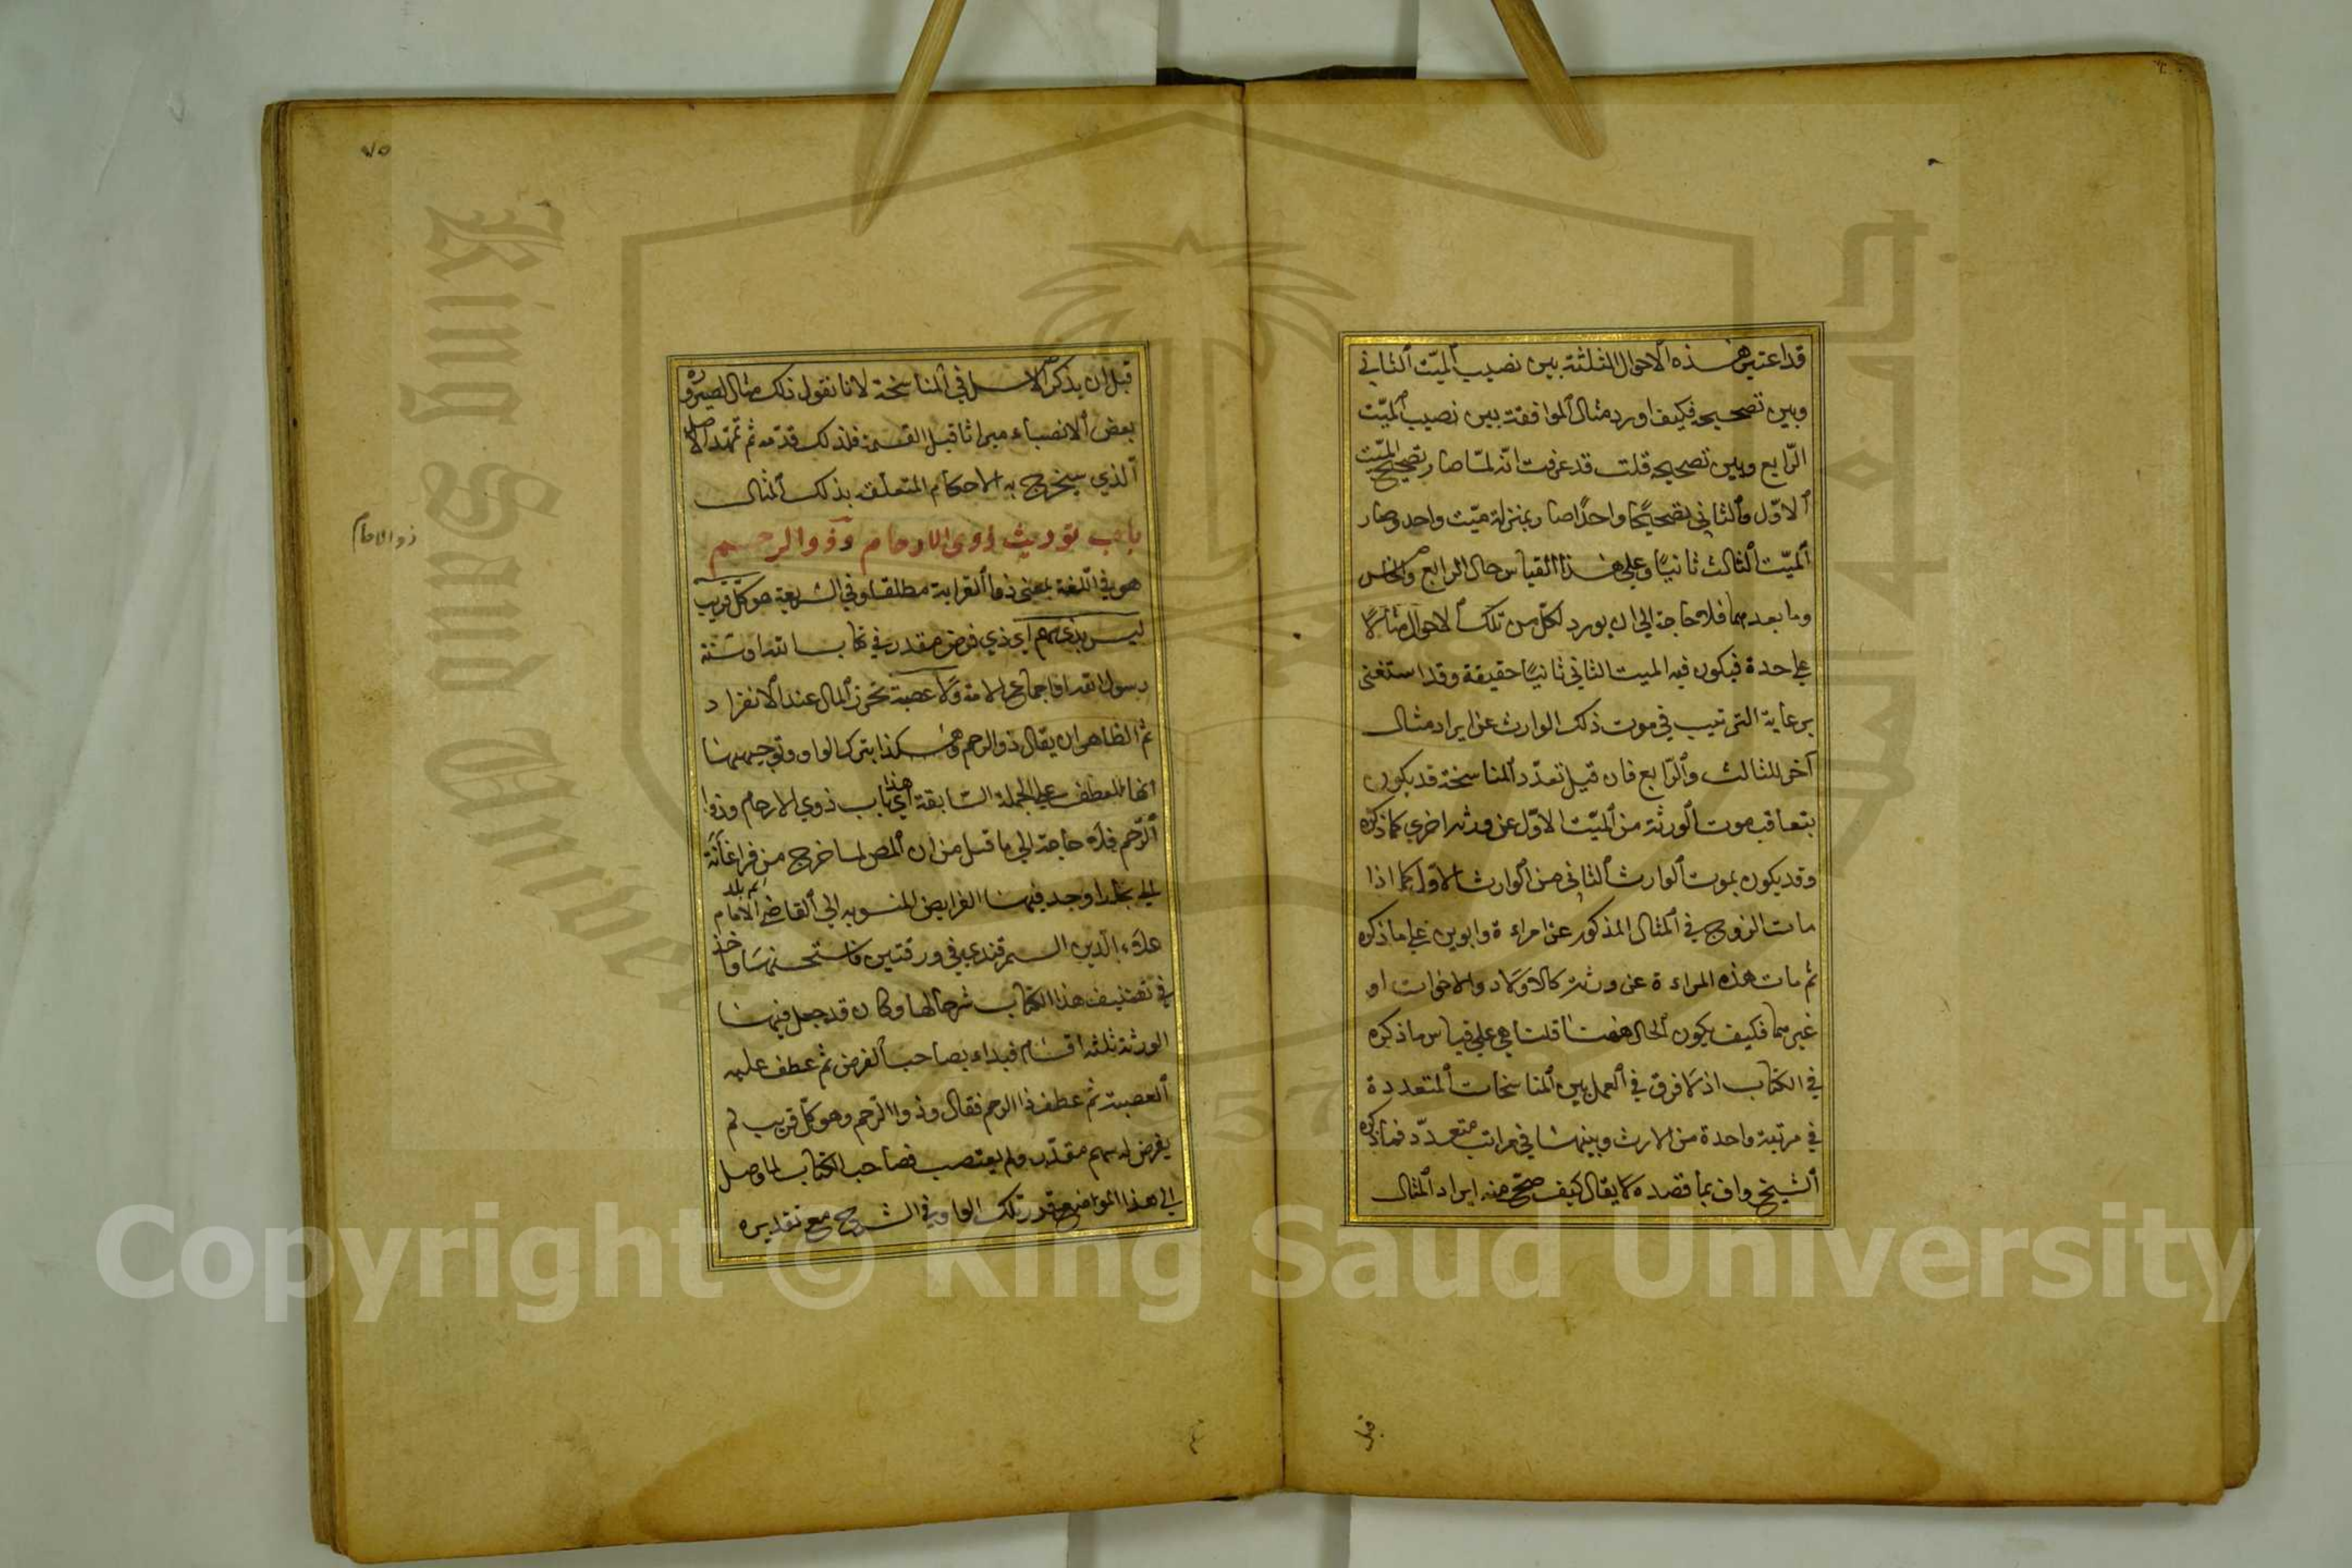 قد اعتبر هذه الاحوال الثلثة بين نصيب الميّت الثاني
وبين تصحيحه فكيف اورد مثال الموافقة بين نصيب الميّت
الرّابع وبين تصحيحه قلت قد عرفت انّه لمّا صار تصحيح الميّت
الاوّل والثاني تصحيحًا واحدًا صار بمنزلة ميّت واحد وصار
الميّت الثالث ثانيًا وعلي هذا القياس حال الرابع والخامس
وما بعدهما فلا حاجة الي ان يورد لكلّ من تلك الاحوال مثالًا
علي حدة فيكون فيه الميت الثاني ثانيًا حقيقة وقد استغني
برعاية الترتيب في موت ذلك الوارث عن ايراد مثال
آخر للثالث والرّابع فان قيل تعدّد المناسخة قد يكون
بتعاقب موت الورثة من الميّت الاوّل عن ورثة اخري كما ذكره
وقد يكون بموت الوارث الثاني من الوارث الاوّل كما اذا
مات الزوج في المثال المذكور عن امراءة وابوين علي ما ذكره
ثم مات هذه المراءة عن ورثة كالاولاد والاخوات او
غيرهما فكيف يكون الحال هنا قلنا هي علي قياس ما ذكره
في الكتاب اذ لا فرق في العمل بين المناسخات المتعددة
في مرتبة واحدة من الارث وبينها في مراتب متعدّد فما ذكره
الشيخ واف بما قصده لا يقال كيف صحّ منه ايراد المثال
قبل
٧٥
قبل ان يذكر الاصل في المناسخة لانا نقول ذلك مثال لصيرورة
بعض الانصباء ميراثا قبل القسمة فلذلك قدّمه ثم تمهّد الاصل
الّذي سيخرج به الاحكام المتعلقه بذلك المثال
باب توريث ذوي الارحام وذو الرحم
هو في اللّغة بمعنى ذي القرابة مطلقا وفي الشريعة هو كلّ قريب
ليس بذي سهم اي ذي فرض مقدر في كتاب الله او سنّة
رسول الله او اجماع الامة ولا عصبة تحرز المال عند الانفراد
ثمّ الظاهر ان يقال ذو الرحم وهكذا بترك الواو وتوجيهها
انها للعطف علي الجملة السّابقة اي هذا باب ذوي الارحام وذوا
الرّحم فلا حاجة الي ما قيل من ان المص لما خرج من فراغانة
الي بخارا وجد فيها الفرايض المنسوبه الي القاضي الامام
علاء الدين السمرقندي في ورقتين فاستحسنها واخذ
في تصنيف هذا الكتاب شرحا لها وكان قد جعل فيها
الورثة ثلثه اقسام فبداء بصاحب الفرض ثم عطف عليه
العصبة ثم عطف ذا الرحم فقال وذوا الرّحم وهو كلّ قريب لم
يفرض له سهم مقدّر ولم يعتصب فصاحب الكتاب لما وصل
الي هذا الموضع قرر تلك الواو في الشرح مع تقديره
ذو الارحام